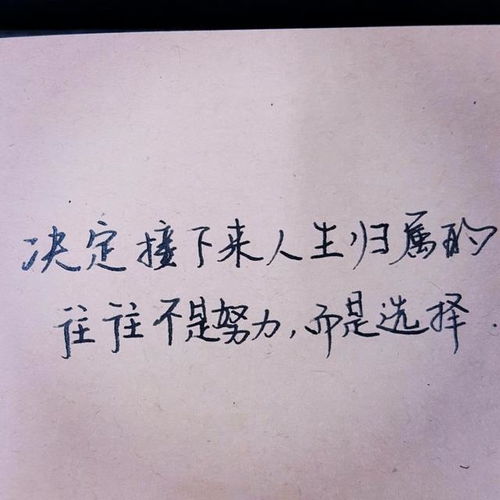 决定接下来人生归属的
往往不是努力,而是选择.